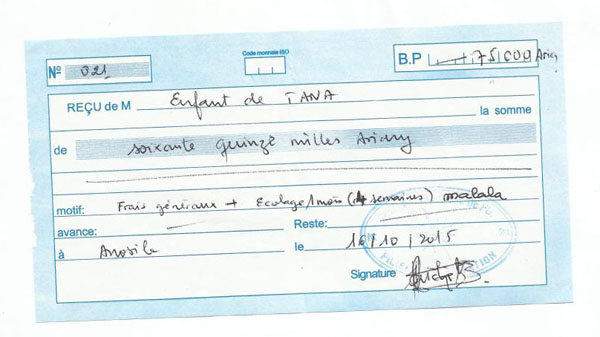 Nº 021
Code monnaie ISO
B.P 75.000 Ariary
REÇU de M Enfant de TANA
la somme
de soixante quinze milles Ariary
motif: Frais généraux + Ecolage/mois (4 semaines) malala
avance: Reste:
à Anosibe le 16/10/2015
Signature